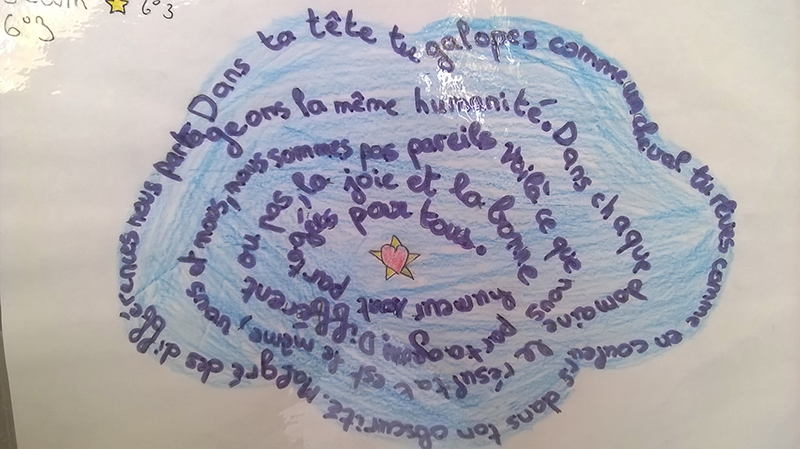 6°3
6°3
Dans ta tête tu galopes comme un cheval tu rêves comme en couleurs dans ton obscurité. Malgré des différences nous partageons la même humanité. Dans chaque domaine le résultat est le même, vous et nous, nous sommes pas pareils voilà ce que nous partageons, Différent ou pas, la joie et la bonne humeur sont partagées par tous.